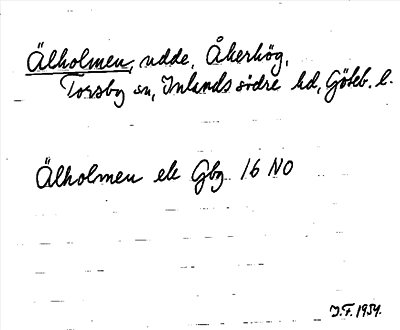 Älholmen, udde, Åkerhög,
Torsby sn, Inlands södre hd, Göteb. l.
Älholmen ek Gbg 16 NO
J.F. 1934.